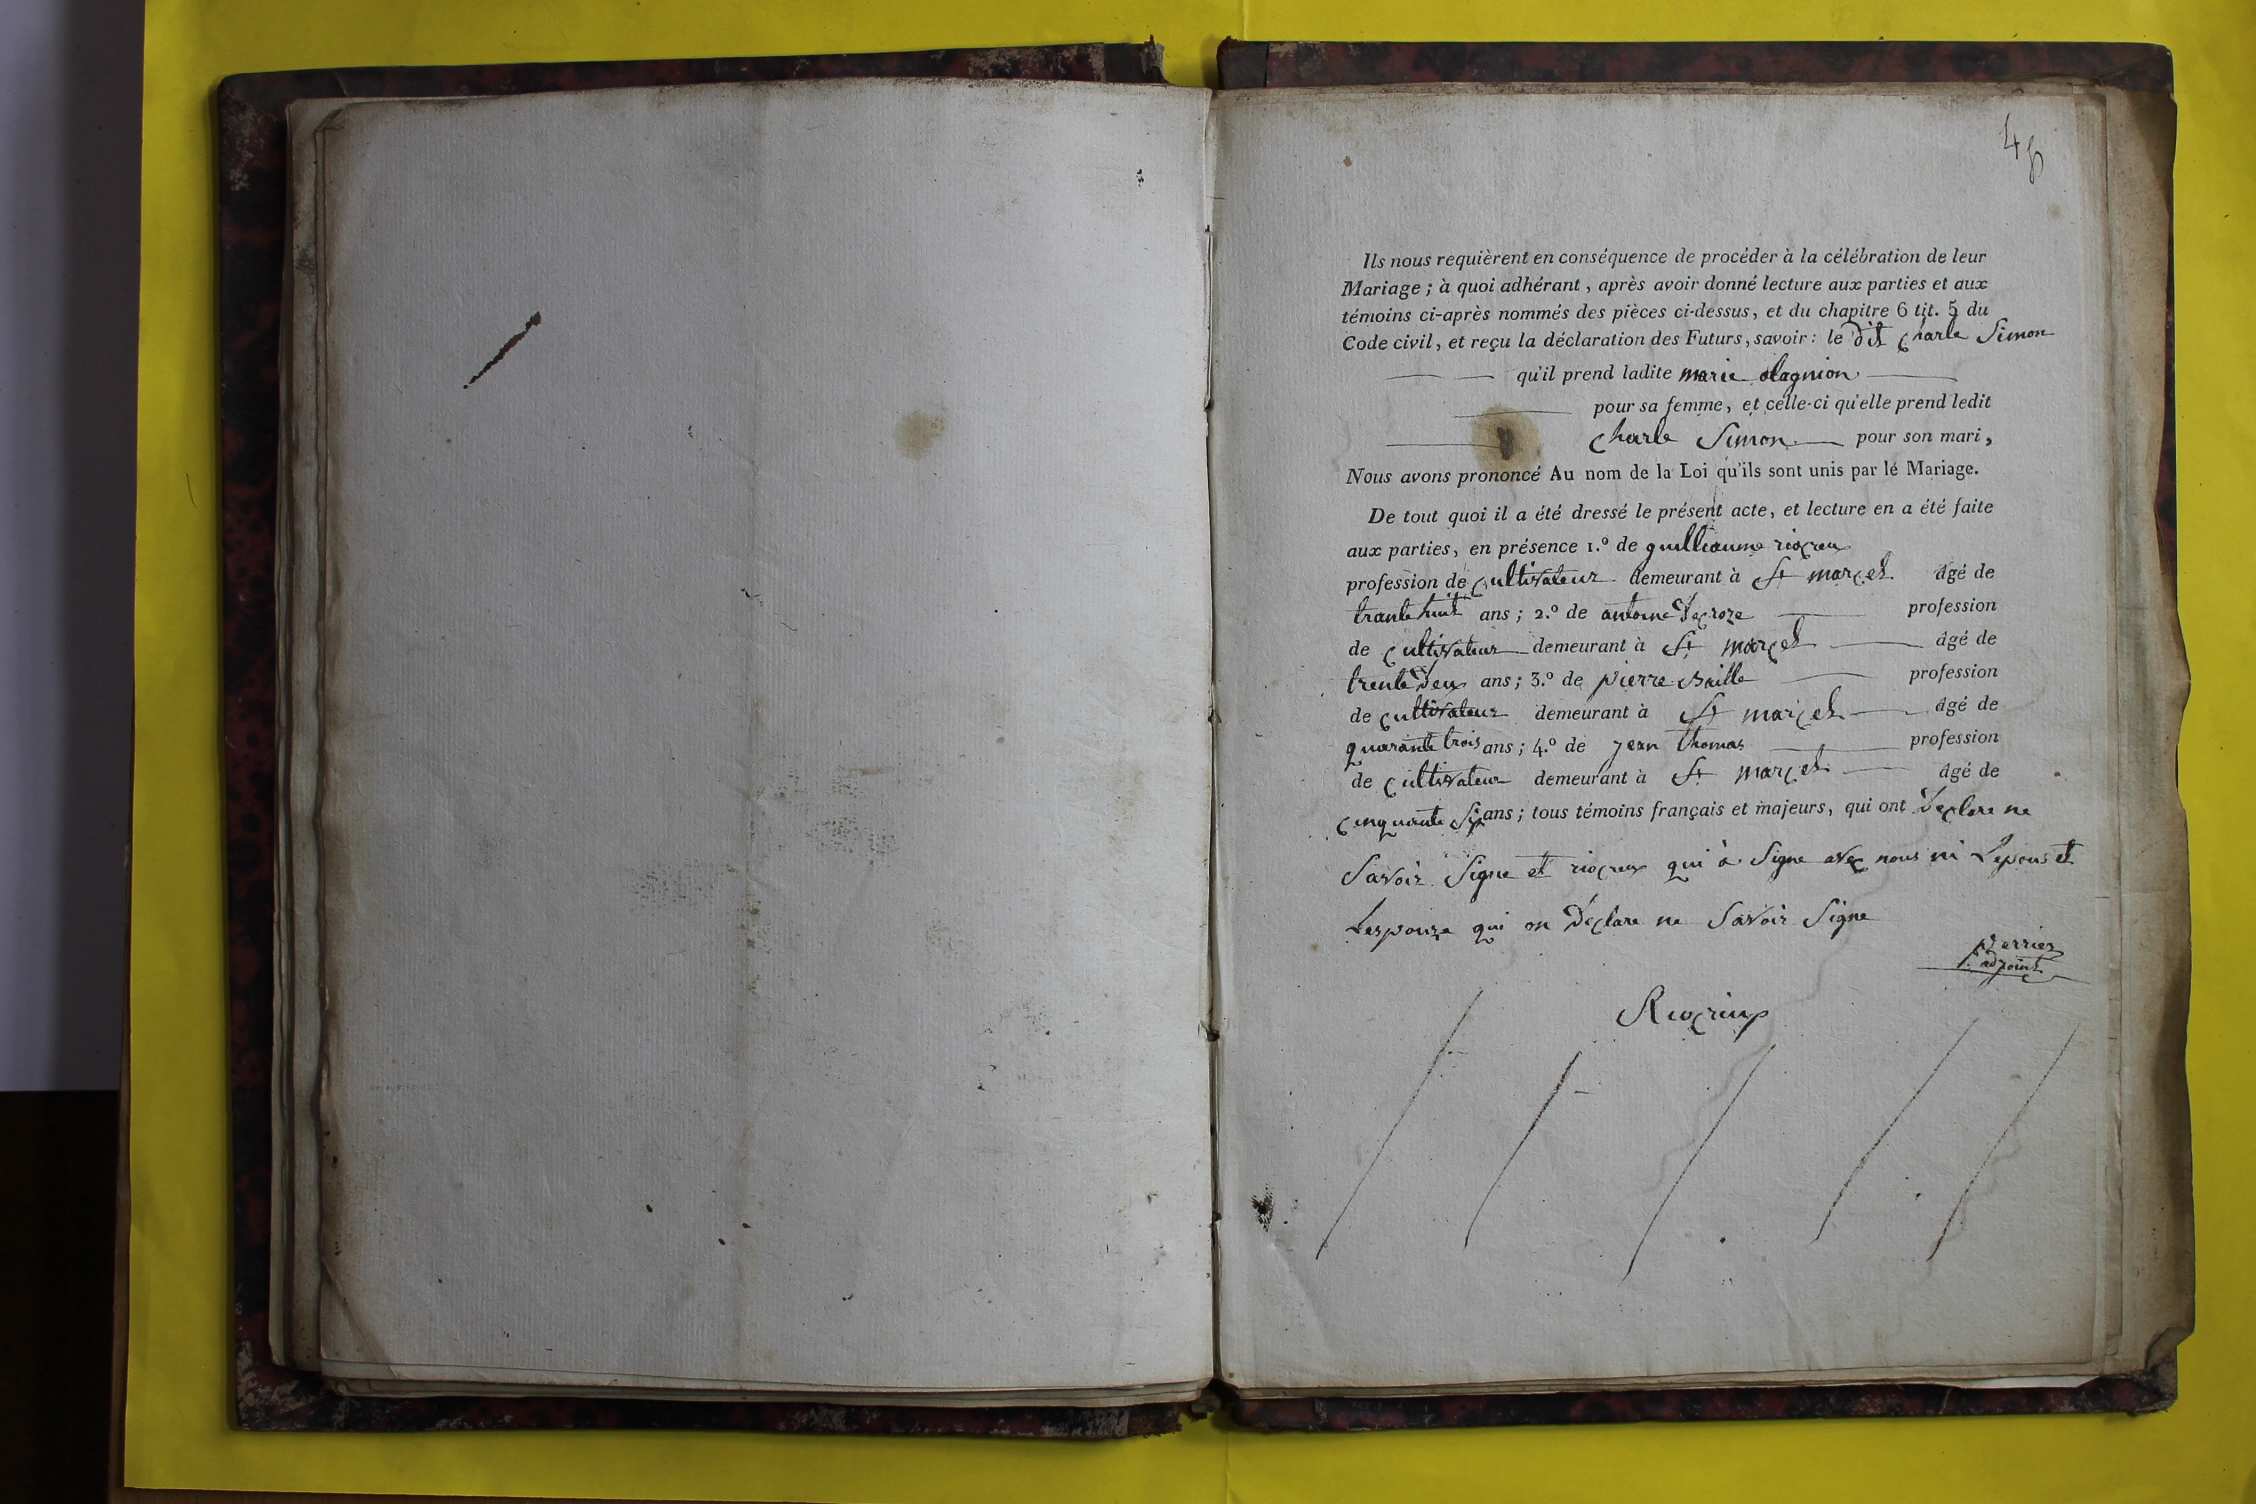 48
Ils nous requièrent en conséquence de procéder à la célébration de leur
Mariage ; à quoi adhérant, après avoir donné lecture aux parties et aux
témoins ci-après nommés des pièces ci-dessus, et du chapitre 6 tit. 5 du
Code civil, et reçu la déclaration des Futurs, savoir : le dit charle Simon
qu'il prend ladite marie olagnion
pour sa femme, et celle-ci qu'elle prend ledit
charle Simon pour son mari,
Nous avons prononcé Au nom de la Loi qu'ils sont unis par lé Mariage.
De tout quoi il a été dressé le présent acte, et lecture en a été faite
aux parties, en présence 1.º de guilliaume riocreux
profession de cultivateur demeurant à St marcel âgé de
trante huit ans ; 2.º de antoine decroze profession
de cultivateur demeurant à St marcel âgé de
trente deux ans ; 3.º de pierre Baille profession
de cultivateur demeurant à St marcel âgé de
quarante trois ans ; 4.º de jean thomas profession
de cultivateur demeurant à St marcel âgé de
cinquante Six ans ; tous témoins français et majeurs, qui ont declare ne
Savoir Signe et riocreux qui à Signe avec nous ni Lepous et
Lespouze qui on declare ne Savoir Signe
perrier
adjoint
Riocreux